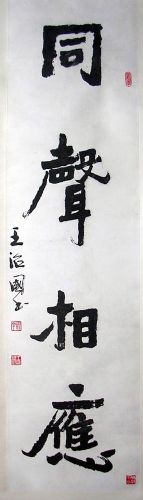 同聲相應
王治國书